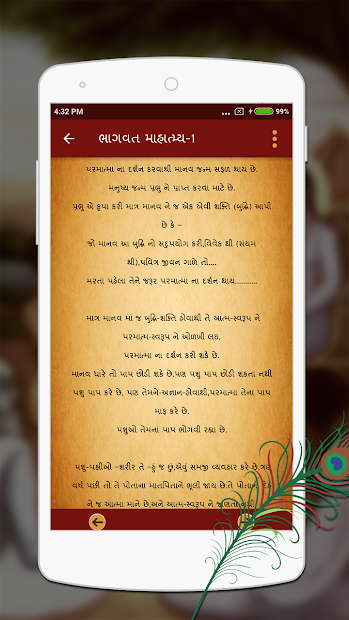 4:32 PM
99%
ભાગવત માહાત્મ્ય-1
પરમાત્મા ના દર્શન કરવાથી માનવ જન્મ સફળ થાય છે.
મનુષ્ય જન્મ પ્રભુ ને પ્રાપ્ત કરવા માટે છે.
પ્રભુ એ કૃપા કરી માત્ર માનવ ને જ એક એવી શક્તિ (બુદ્ધિ) આપી
છે કે –
જો માનવ આ બુદ્ધિ નો સદુપયોગ કરી,વિવેક થી (સંયમ
થી),પવિત્ર જીવન ગાળે તો....
મરતાં પહેલા તેને જરૂર પરમાત્મા ના દર્શન થાય...........
માત્ર માનવ માં જ બુદ્ધિ-શક્તિ હોવાથી તે આત્મ-સ્વરૂપ ને
પરમાત્મ-સ્વરૂપ ને ઓળખી લઇ,
પરમાત્મા ના દર્શન કરી શકે છે.
માનવ ધારે તો પાપ છોડી શકે છે.પણ પશુ પાપ છોડી શકતા નથી
પશુ પાપ કરે છે, પણ તેમને-અજ્ઞાન-હોવાથી,પરમાત્મા તેના પાપ
માફ કરે છે.
પશુઓ તેમનાં પાપ ભોગવી રહ્યા છે.
પશુ-પક્ષીઓ –શરીર તે –હું જ છું,એવું સમજી વ્યવહાર કરે છે.ત્રણ
વર્ષ પછી તો તે પોતાના માતપિતાને ભૂલી જાય છે.તે પોતાના દેહ
ને જ આત્મા માને છે.અને આત્મ-સ્વરૂપ ને જાણતાં નથી